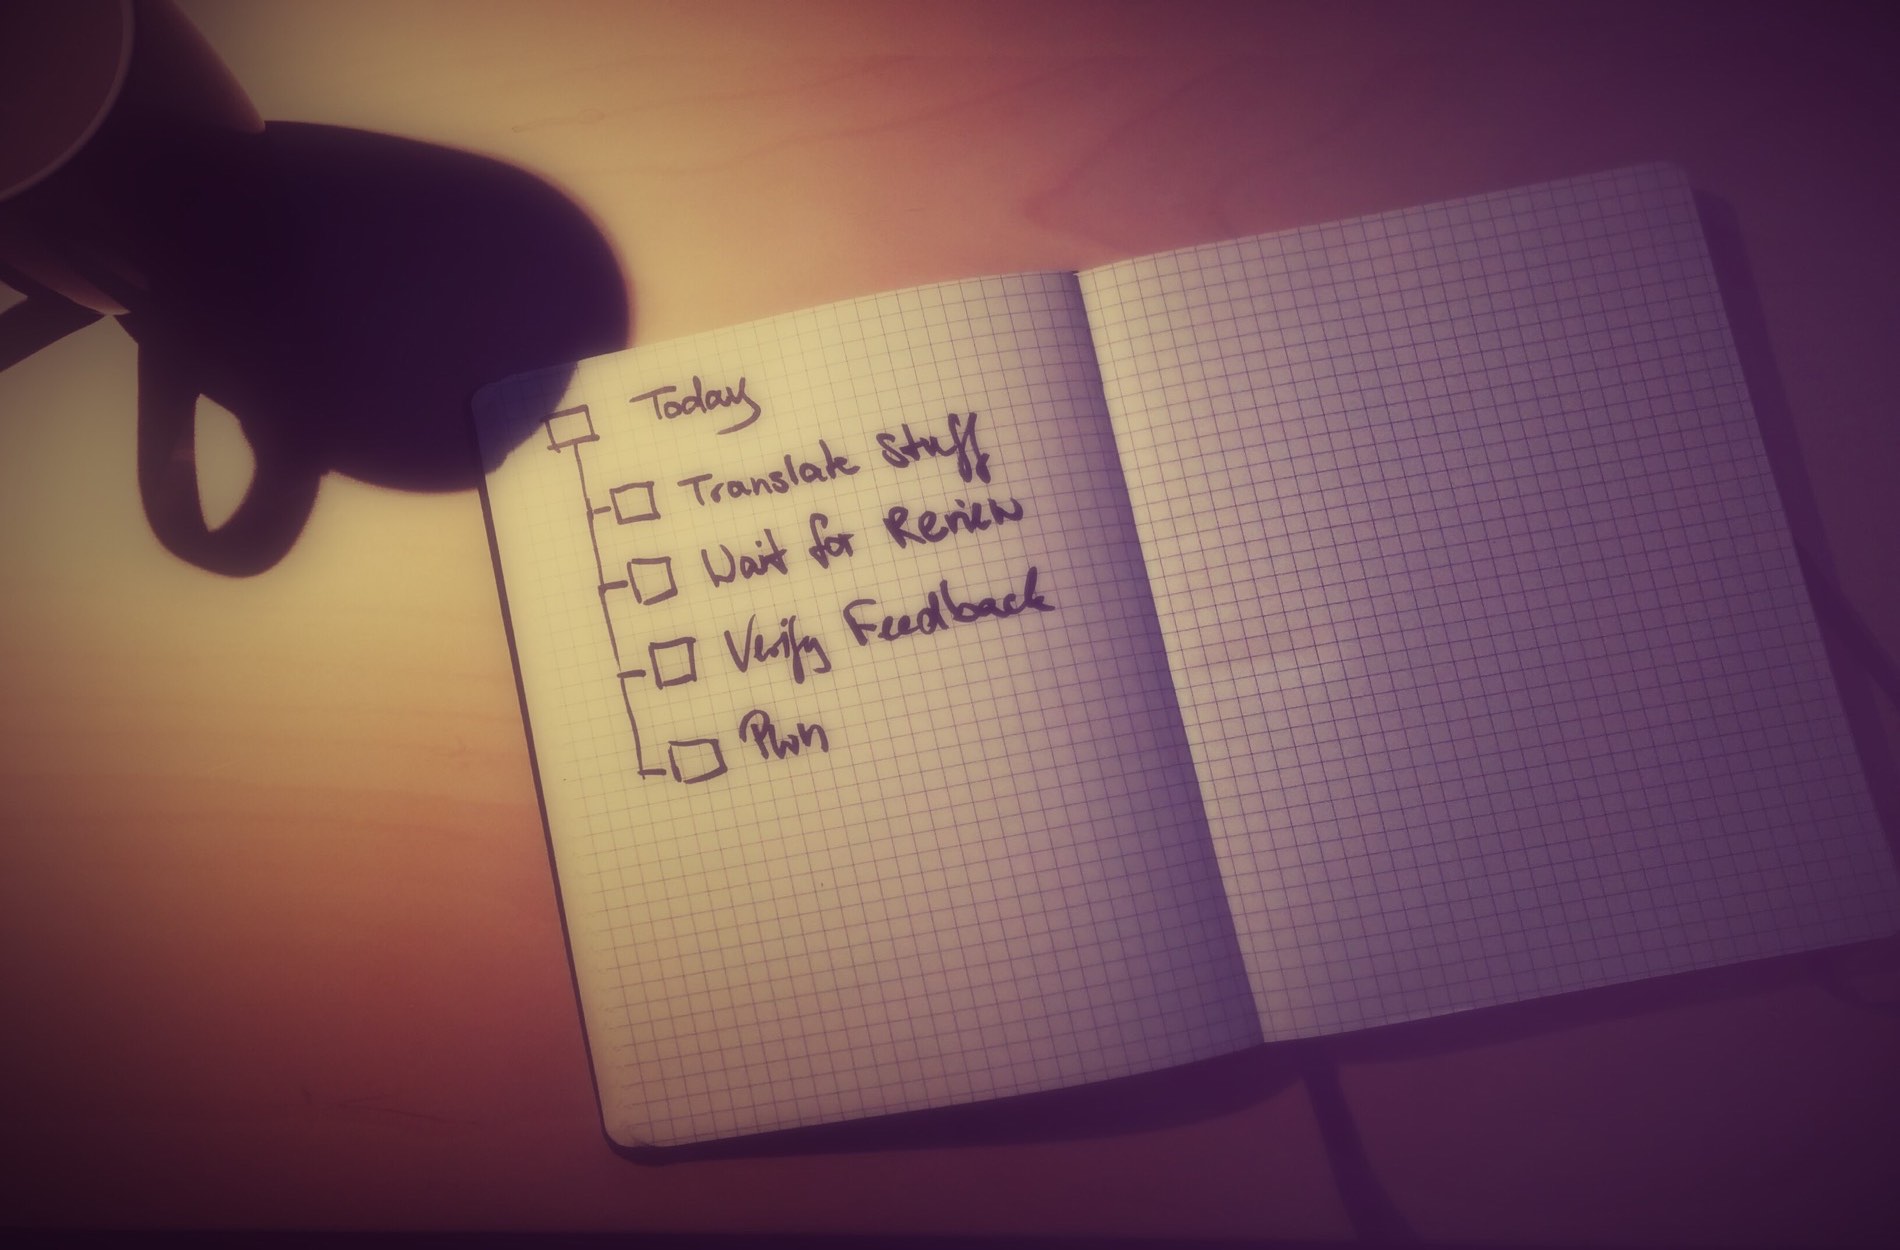 Today
Translate Stuff
Wait for Review
Verify Feedback
Plan